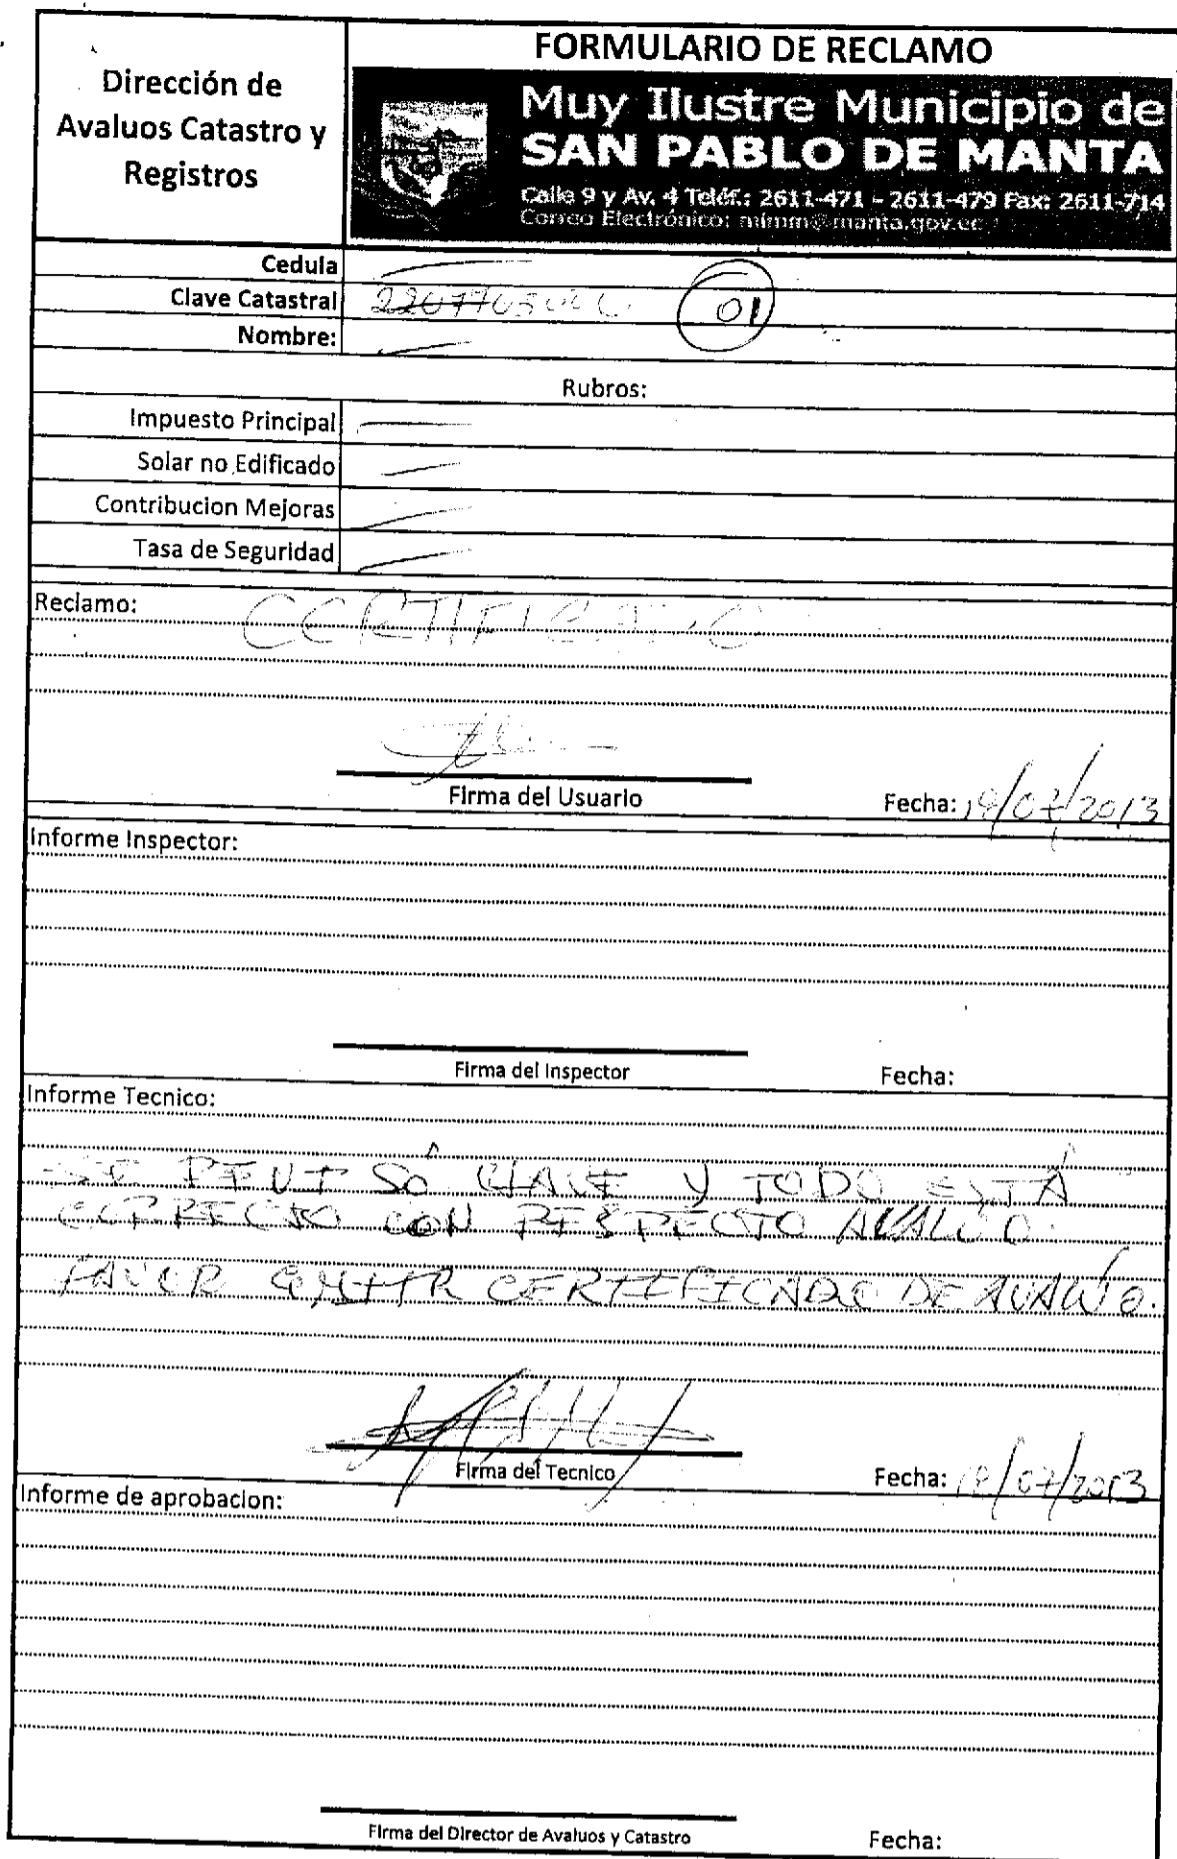 Dirección de
Avaluos Catastro y
Registros
FORMULARIO DE RECLAMO
Muy Ilustre Municipio de
SAN PABLO DE MANTA
Calle 9 y Av. 4 Teléf.: 2611-471 - 2611-479 Fax: 2611-714
Correo Electrónico: mimm@manta.gov.ec
Cedula
Clave Catastral 01
Nombre:
Rubros:
Impuesto Principal
Solar no Edificado
Contribucion Mejoras
Tasa de Seguridad
Reclamo: CERTIFICADO
Firma del Usuario
Fecha: /07/2013
Informe Inspector:
Firma del Inspector
Fecha:
Informe Tecnico:
SE REVISÓ CLAVE Y TODO ESTÁ
CORRECTO CON RESPECTO AVALÚO.
FAVOR EMITIR CERTIFICADO DE AVALÚO.
Firma del Tecnico
Fecha: /07/2013
Informe de aprobacion:
Firma del Director de Avaluos y Catastro
Fecha: